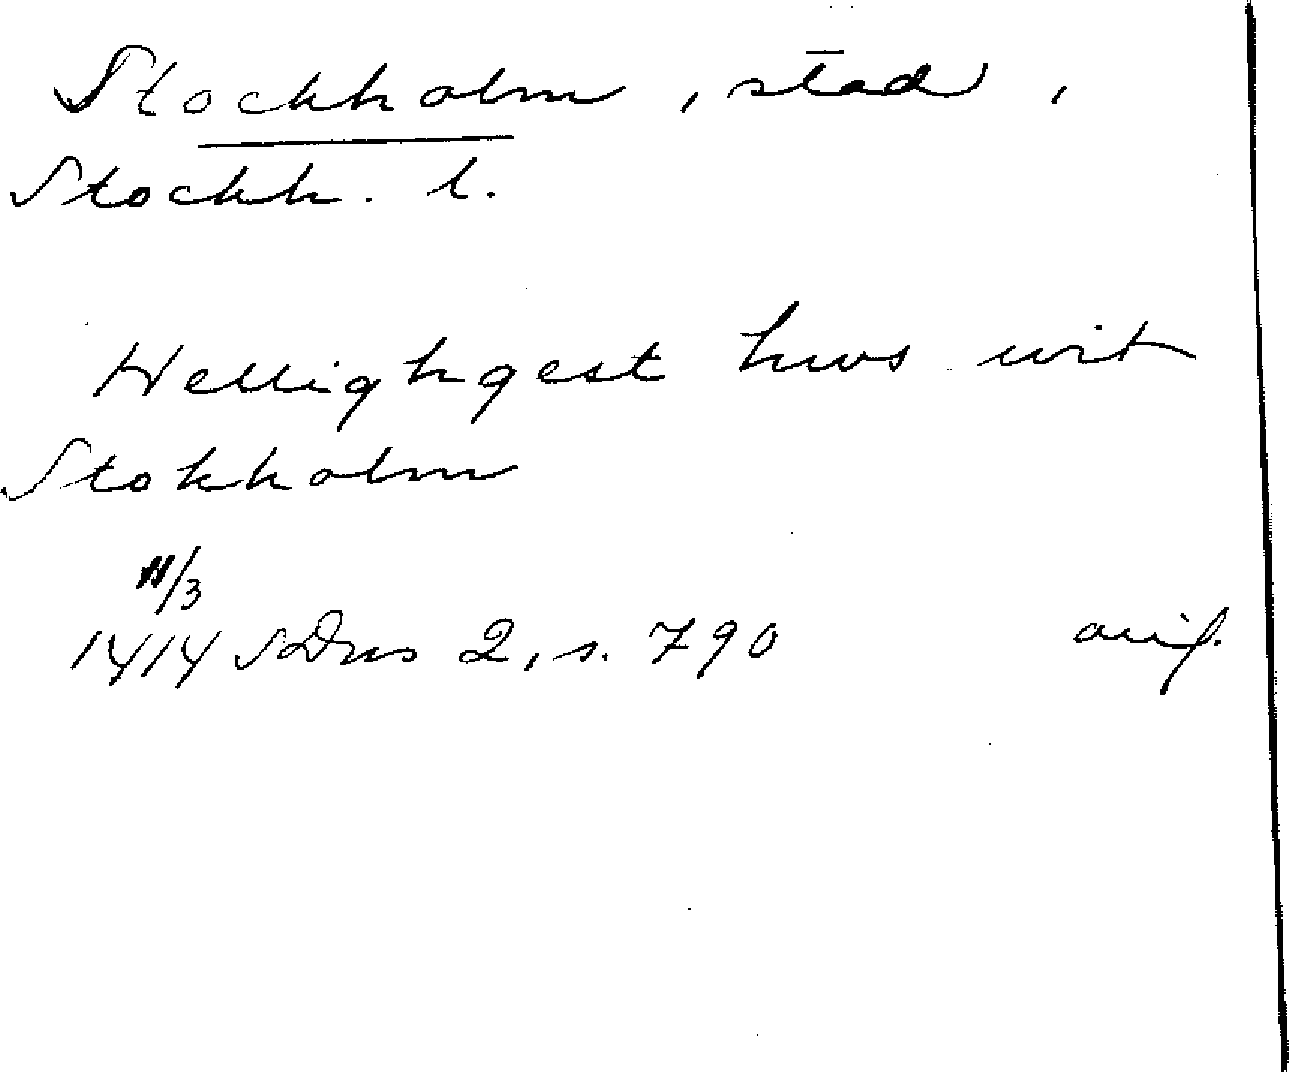 Stockholm, stad,
Stockh. l.
Hellighgest hws wit
Stokholm
11/3
1414 SDns 2, s. 790 avif.